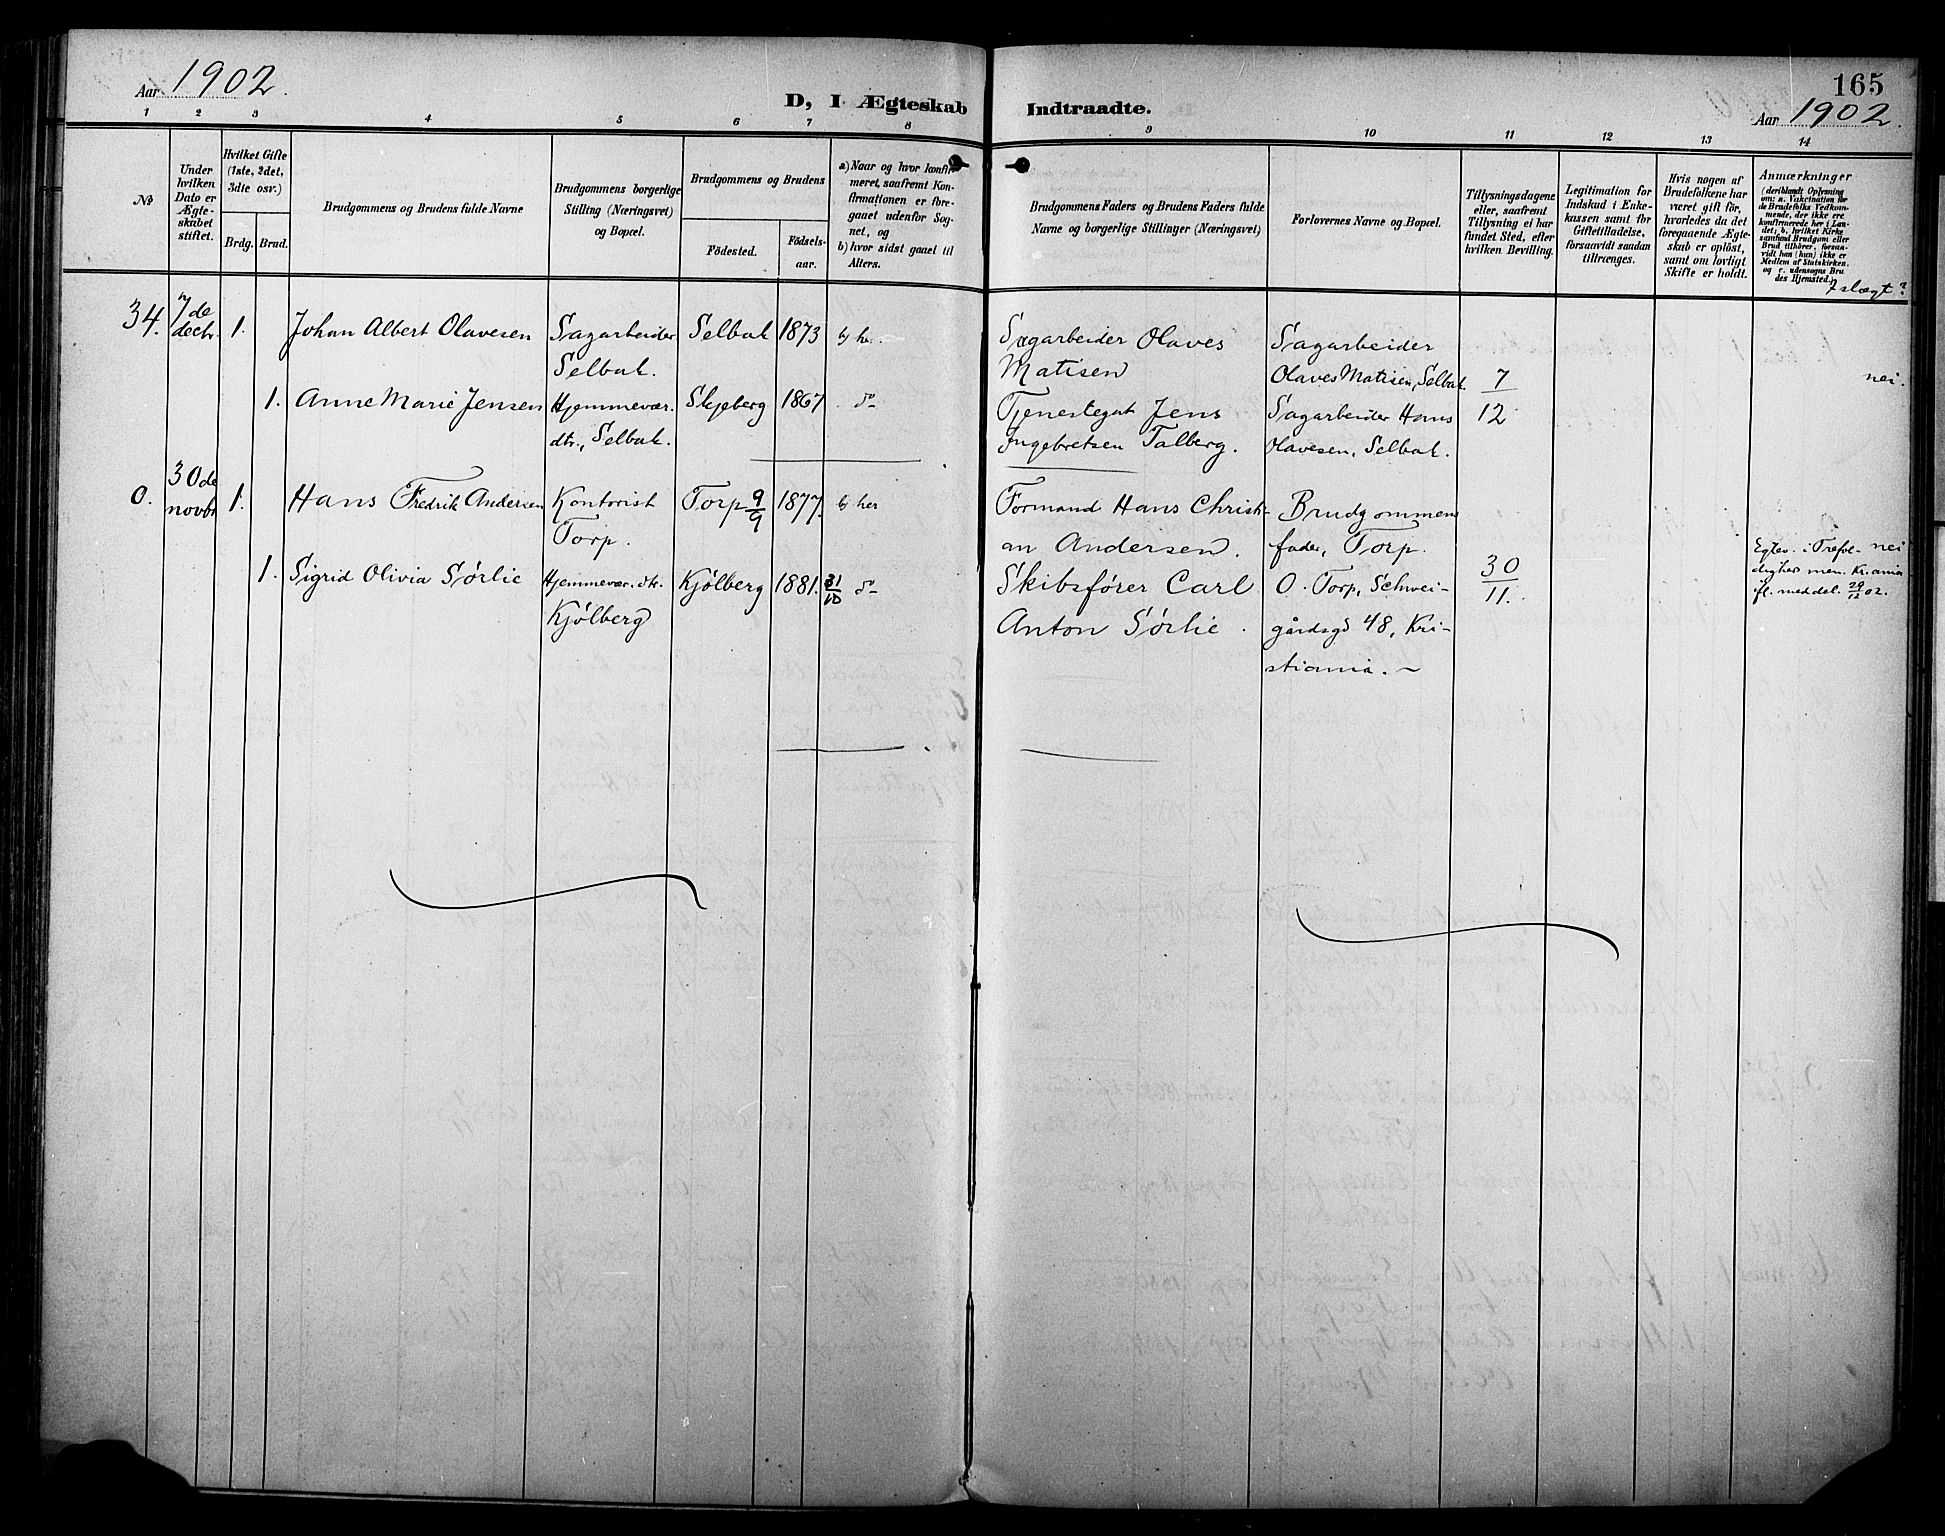 Aar 1902.
D, I Ægteskab
Indtraadte.
165
Aar 1902.
1 2 3 4 5 6 7 8
9 10 11 12 13 14
No
Under hvilken Dato er Ægte-skabet stiftet.
Hvilket Gifte (1ste, 2det, 3die osv.)
Brdg. Brud.
Brudgommens og Brudens fulde Navne
Brudgommens borgerlige Stilling (Næringsvei) og Bopæl.
Brudgommens og Brudens
Fødested.
Fødsels-aar.
a) Naar og hvor konfir-
meret, saafremt Kon-
firmationen er fore-
gaaet udenfor Sog-
net, og
b) hvor sidst gaaet til
Alters.
Brudgommens Faders og Brudens Faders fulde
Navne og borgerlige Stillinger (Næringsvei)
Forlovernes Navne og Bopæl.
Tillysningsdagene
eller, saafremt
Tillysning ei har
fundet Sted, efter
hvilken Bevilling.
Legitimation for
Indskud i Enke-
kassen samt for
Giftetilladelse,
forsaavidt saadan
tiltrænges.
Hvis nogen af
Brudefolkene har
været gift før,
hvorledes da det
foregaaende Ægte-
skab er opløst,
samt om lovligt
Skifte er holdt.
Anmærkninger
(deriblandt Oplysning
om: a. Vakcination for
de Brudefolks Vedkom-
mende, der ikke ere
konfirmerede her i Lan-
det; b. hvilket Kirke
samfund Brudgom eller
Brud tilhører, forsaa-
vidt han (hun) ikke er
Medlem af Statskirken.
og c. udensogns Bru
des Hjemsted.)
I slægt?
34. 7de decbr. 1. Johan Albert Olavesen Sagarbeider Selbak. Selbak 1873 b) her.
Sagarbeider Olaves Matisen
Sagarbeider Olaves Matisen, Selbak
7
12.
nei.
1. Anne Marie Jensen Hjemmevær. dtr., Selbak. Skjeberg 1867 do
Tjenestegut Jens Ingebretsen Talberg.
Sagarbeider Hans Olavesen, Selbak.
0. 30de novbr 1. Hans Fredrik Andersen Kontorist Torp. Torp 9/9 1877. b) her
Formand Hans Christi-
an Andersen.
Brudgommens
fader, Torp.
30
11.
1. Sigrid Olivia Sørlie Hjemmevær. dtr. Kjølberg Kjølberg 1881. 31/10 do
Skibsfører Carl
Anton Sørlie.
O. Torp, Schwei-
gårdsgd 48, Kri-
stiania.
Egtev. i Trefol-
dighets men. Kr.ania
fl. meddel. 29/12 02.
nei